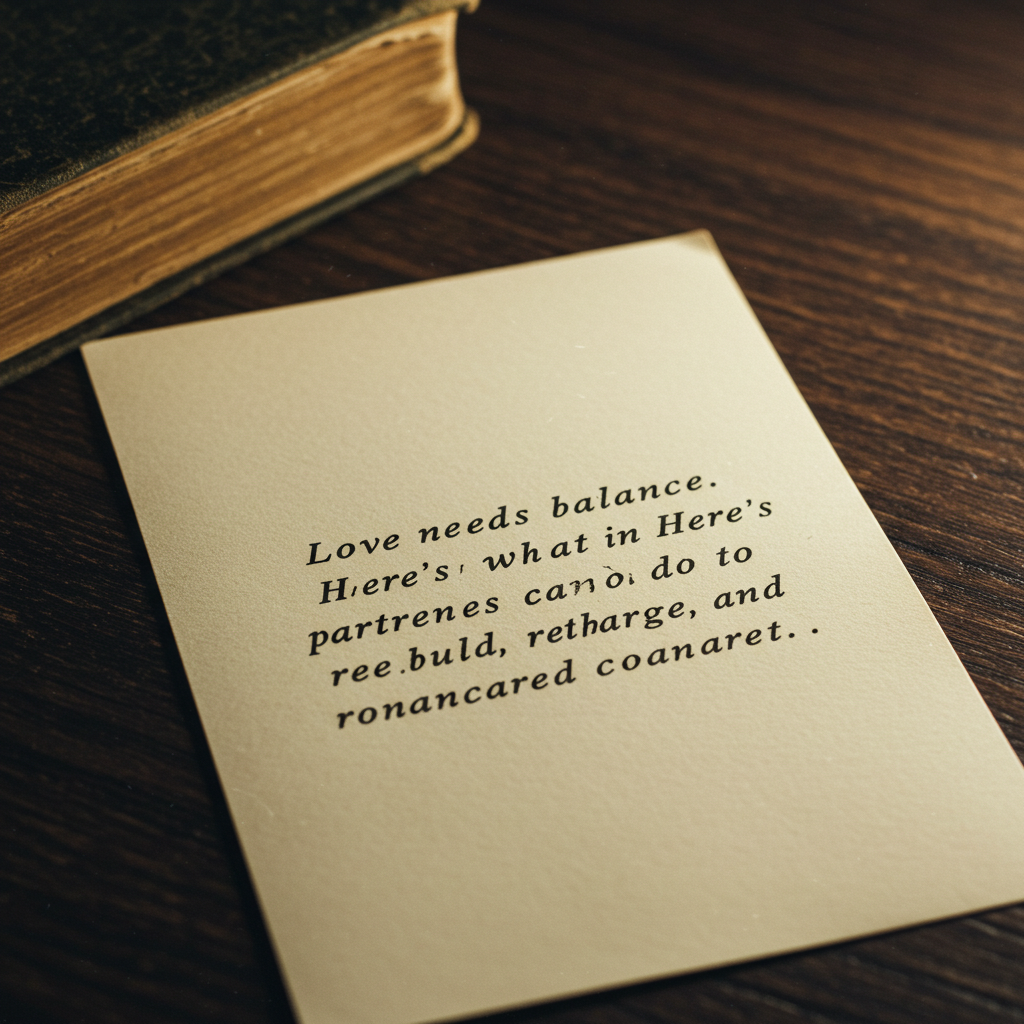 Love needs balance.
H,ere's, what in Here's
partrenes do to
ree.buld, retharge, and
ronancared coanaret. .